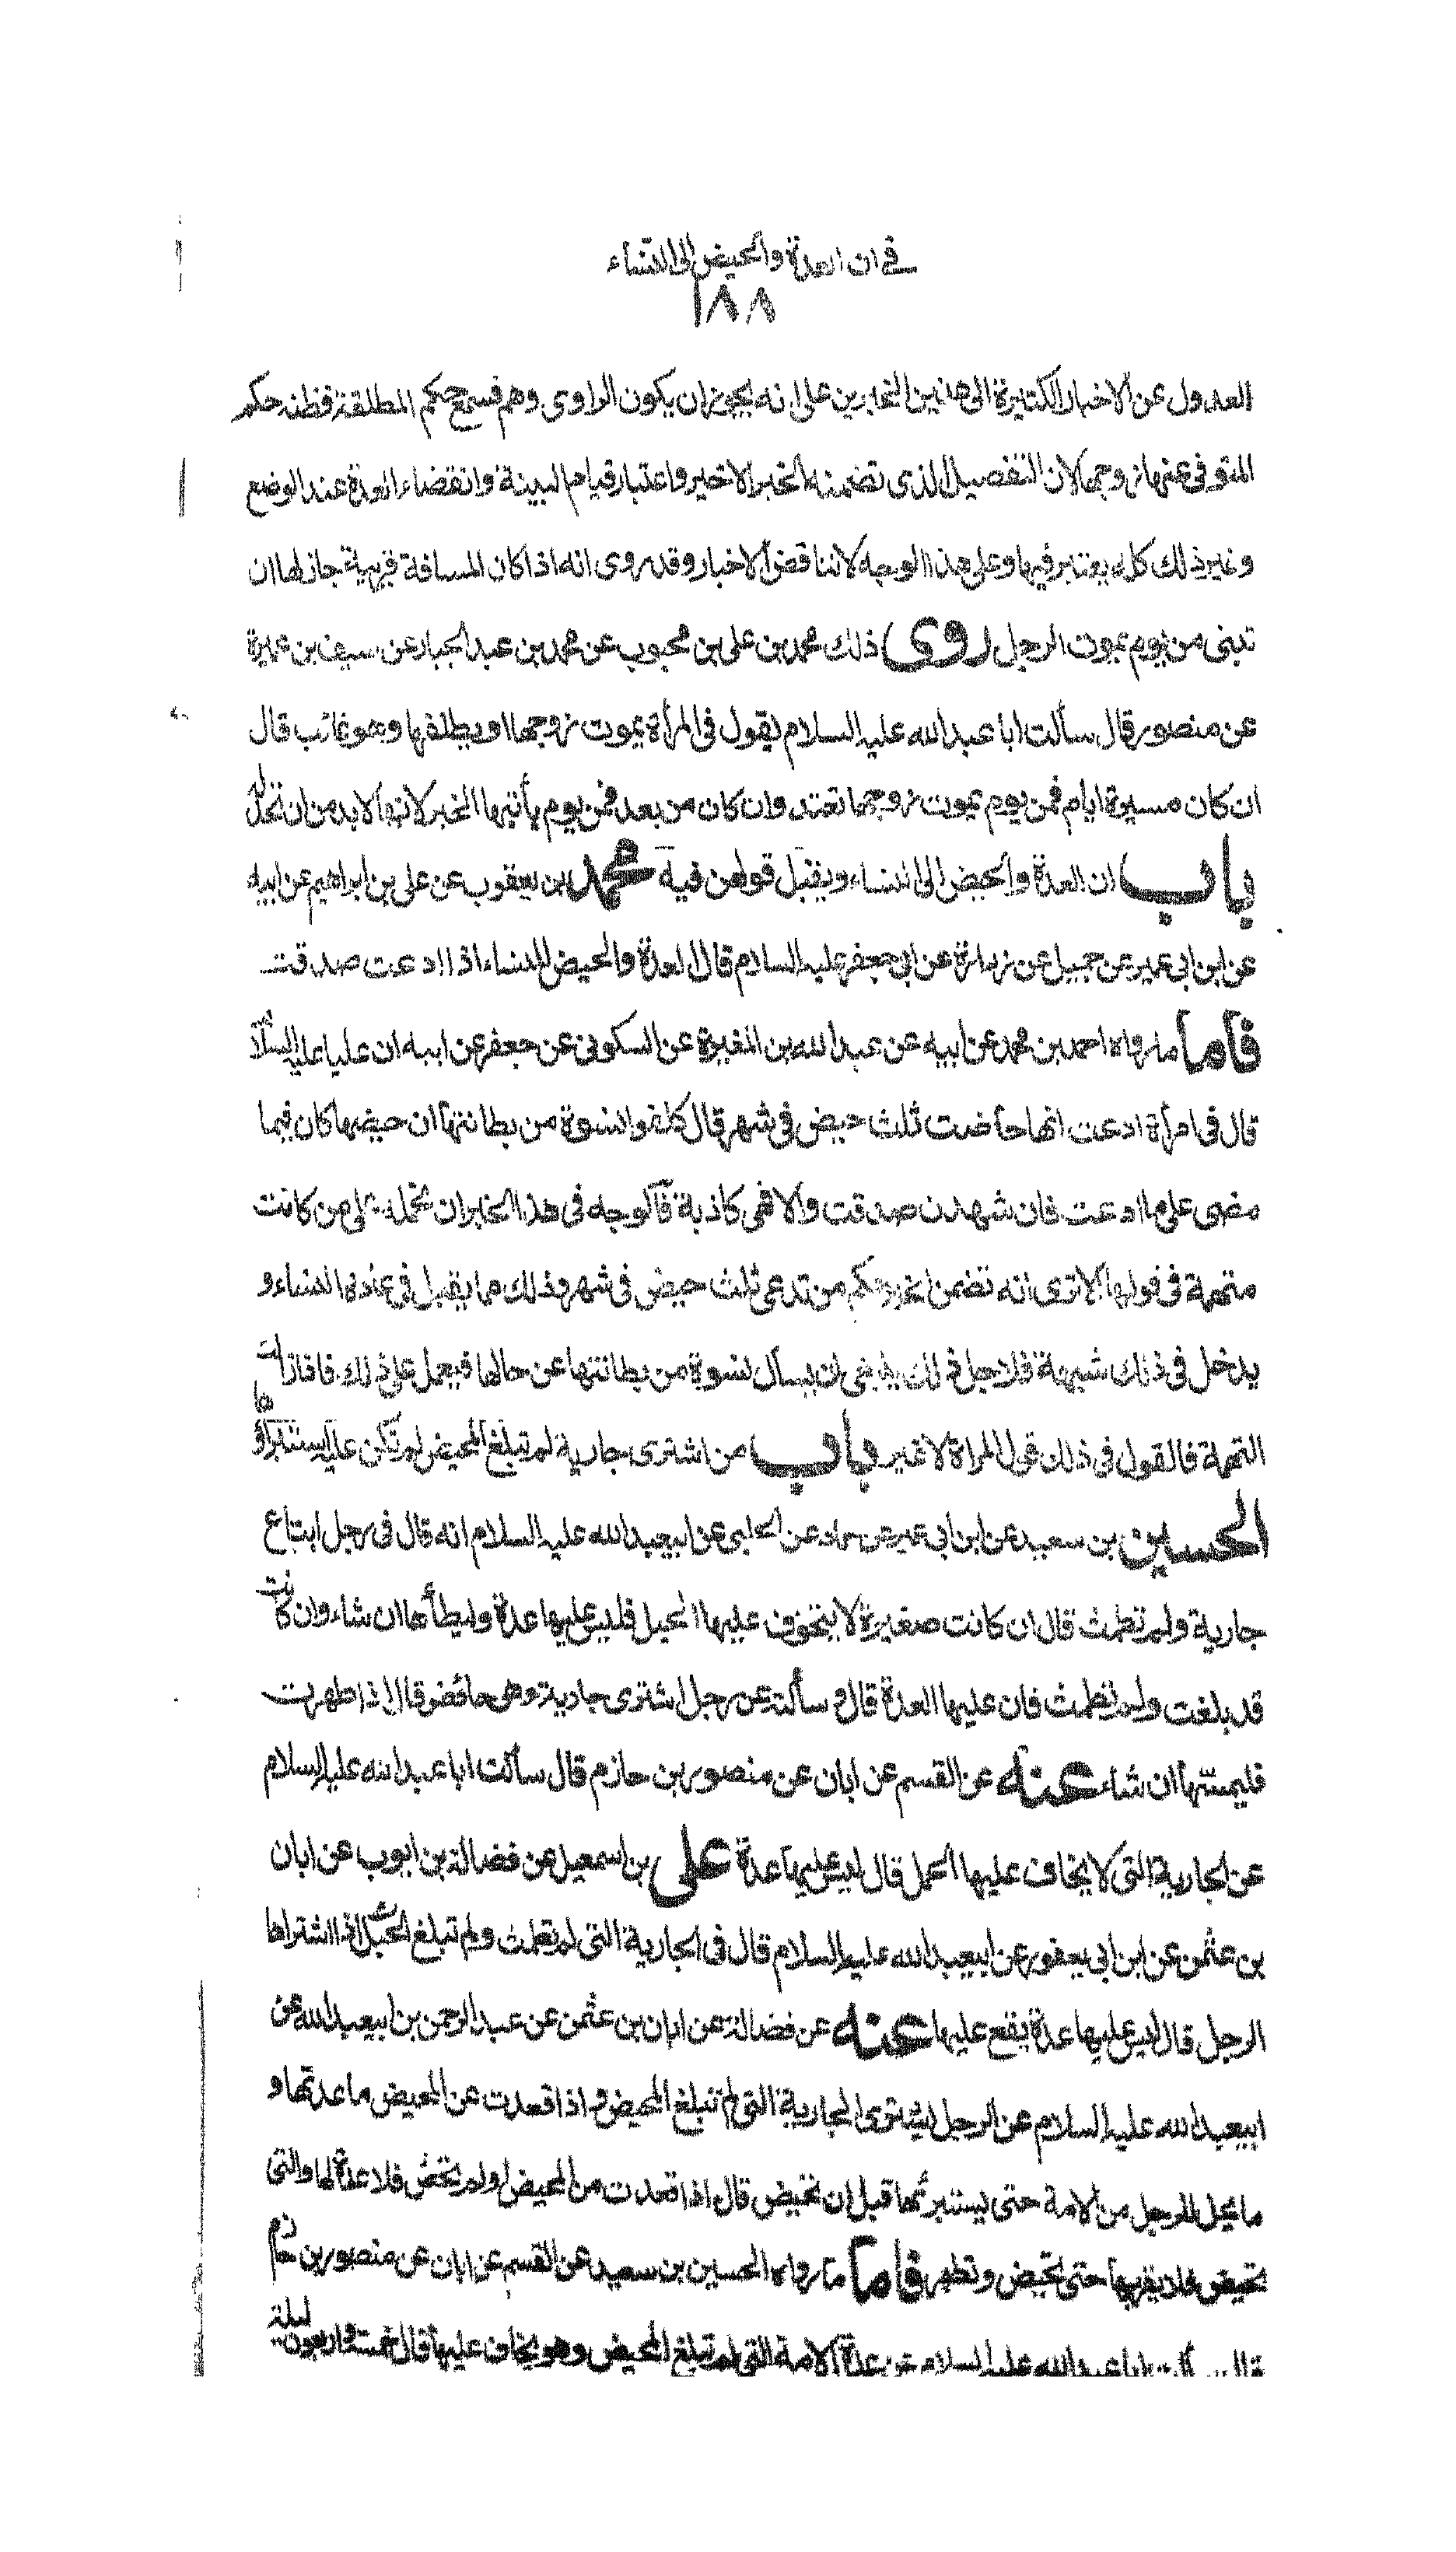 في ان العدة والحيض الى النساء
١٨٨
العدول عن الاخبار الكثيرة الى هذين الخبرين على انه يجوز ان يكون الراوى وهم فسمع حكم المطلقة فظنه حكم
المتوفى عنها زوجها لان التفصيل الذى تضمنه الخبر الاخير واعتبار قيام البينة وانقضاء العدة عند الوضع
وغير ذلك كله يعتبر فيها وعلى هذا الوجه لا تناقض الاخبار وقد روى انه اذا كان المسافة قريبة جاز لها ان
تبنى من يوم يموت الرجل (روى) ذلك محمد بن على بن محبوب عن محمد بن عبد الجبار عن سيف بن عميرة
عن منصور قال سألت ابا عبد الله عليه السلام يقول فى المرأة يموت زوجها او يطلقها وهو غائب قال
ان كان مسيرة ايام فمن يوم يموت زوجها تعتد وان كان من بعد فمن يوم يأتيها الخبر لانها لا بد من ان تحد له
باب ان العدة والحيض الى النساء ويقبل قولهن فيه محمد بن يعقوب عن على بن ابراهيم عن ابيه
عن ابن ابى عمير عن جميل عن زرارة عن ابى جعفر عليه السلام قال العدة والحيض للنساء اذا ادعت صدقت
فاما ما رواه احمد بن محمد عن ابيه عن عبد الله بن المغيرة عن السكونى عن جعفر عن ابيه ان عليا عليه السلام
قال فى امرأة ادعت انها حاضت ثلث حيض فى شهر قال كلفوا نسوة من بطانتها ان حيضها كان فيما
مضى على ما ادعت فان شهدن صدقت والا فهى كاذبة فالوجه فى هذا الخبر ان نحمله على من كانت
متهمة فى قولها الا ترى انه تضمن الخبر حكم من تدعى ثلث حيض فى شهر وذلك مما يقبل فى عادة النساء و
يدخل فى ذلك شبهة فلاجل ذلك ينبغى ان يسأل نسوة من بطانتها عن حالها فيعمل على ذلك فاما زالت
التهمة فالقول فى ذلك قول المراة لا غير باب من اشترى جارية لم تبلغ المحيض لم تكن عليه استبراؤها
الحسين بن سعيد عن ابن ابى عمير عن حماد عن الحلبى عن ابيعبد الله عليه السلام انه قال فى رجل ابتاع
جارية ولم تطمث قال ان كانت صغيرة لا يتخوف عليها الحبل فليس عليها عدة وليطأها ان شاء وان كانت
قد بلغت ولم تطمث فان عليها العدة قال و سألته عن رجل اشترى جارية وهى حائض قال اذا طهرت
فليمسها ان شاء عنه عن القسم عن ابان عن منصور بن حازم قال سألت ابا عبد الله عليه السلام
عن الجارية التى لا يخاف عليها الحمل قال ليس عليها عدة على بن اسمعيل عن فضالة بن ايوب عن ابان
بن عثمن عن ابن ابى يعفور عن ابيعبد الله عليه السلام قال فى الجارية التى لم تطمث ولم تبلغ الحبل اذا اشتراها
الرجل قال ليس عليها عدة يقع عليها عنه عن فضالة عن ابان بن عثمن عن عبد الرحمن بن ابيعبد الله عن
ابيعبد الله عليه السلام عن الرجل اشترى الجارية التى لم تبلغ المحيض و اذا قعدت عن المحيض ما عدتها و
ما يحل للرجل من الامة حتى يستبرئها قبل ان تحيض قال اذا قعدت من المحيض او لم تحض فلا عدة لها والتى
تحيض فلا يقربها حتى تحيض وتطهر فاما ما رواه الحسين بن سعيد عن القسم عن ابان عن منصور بن حازم
قال سألت ابا عبد الله عليه السلام عن عدة الامة التى لم تبلغ المحيض وهو يخاف عليها قال خمسة واربعون ليلة